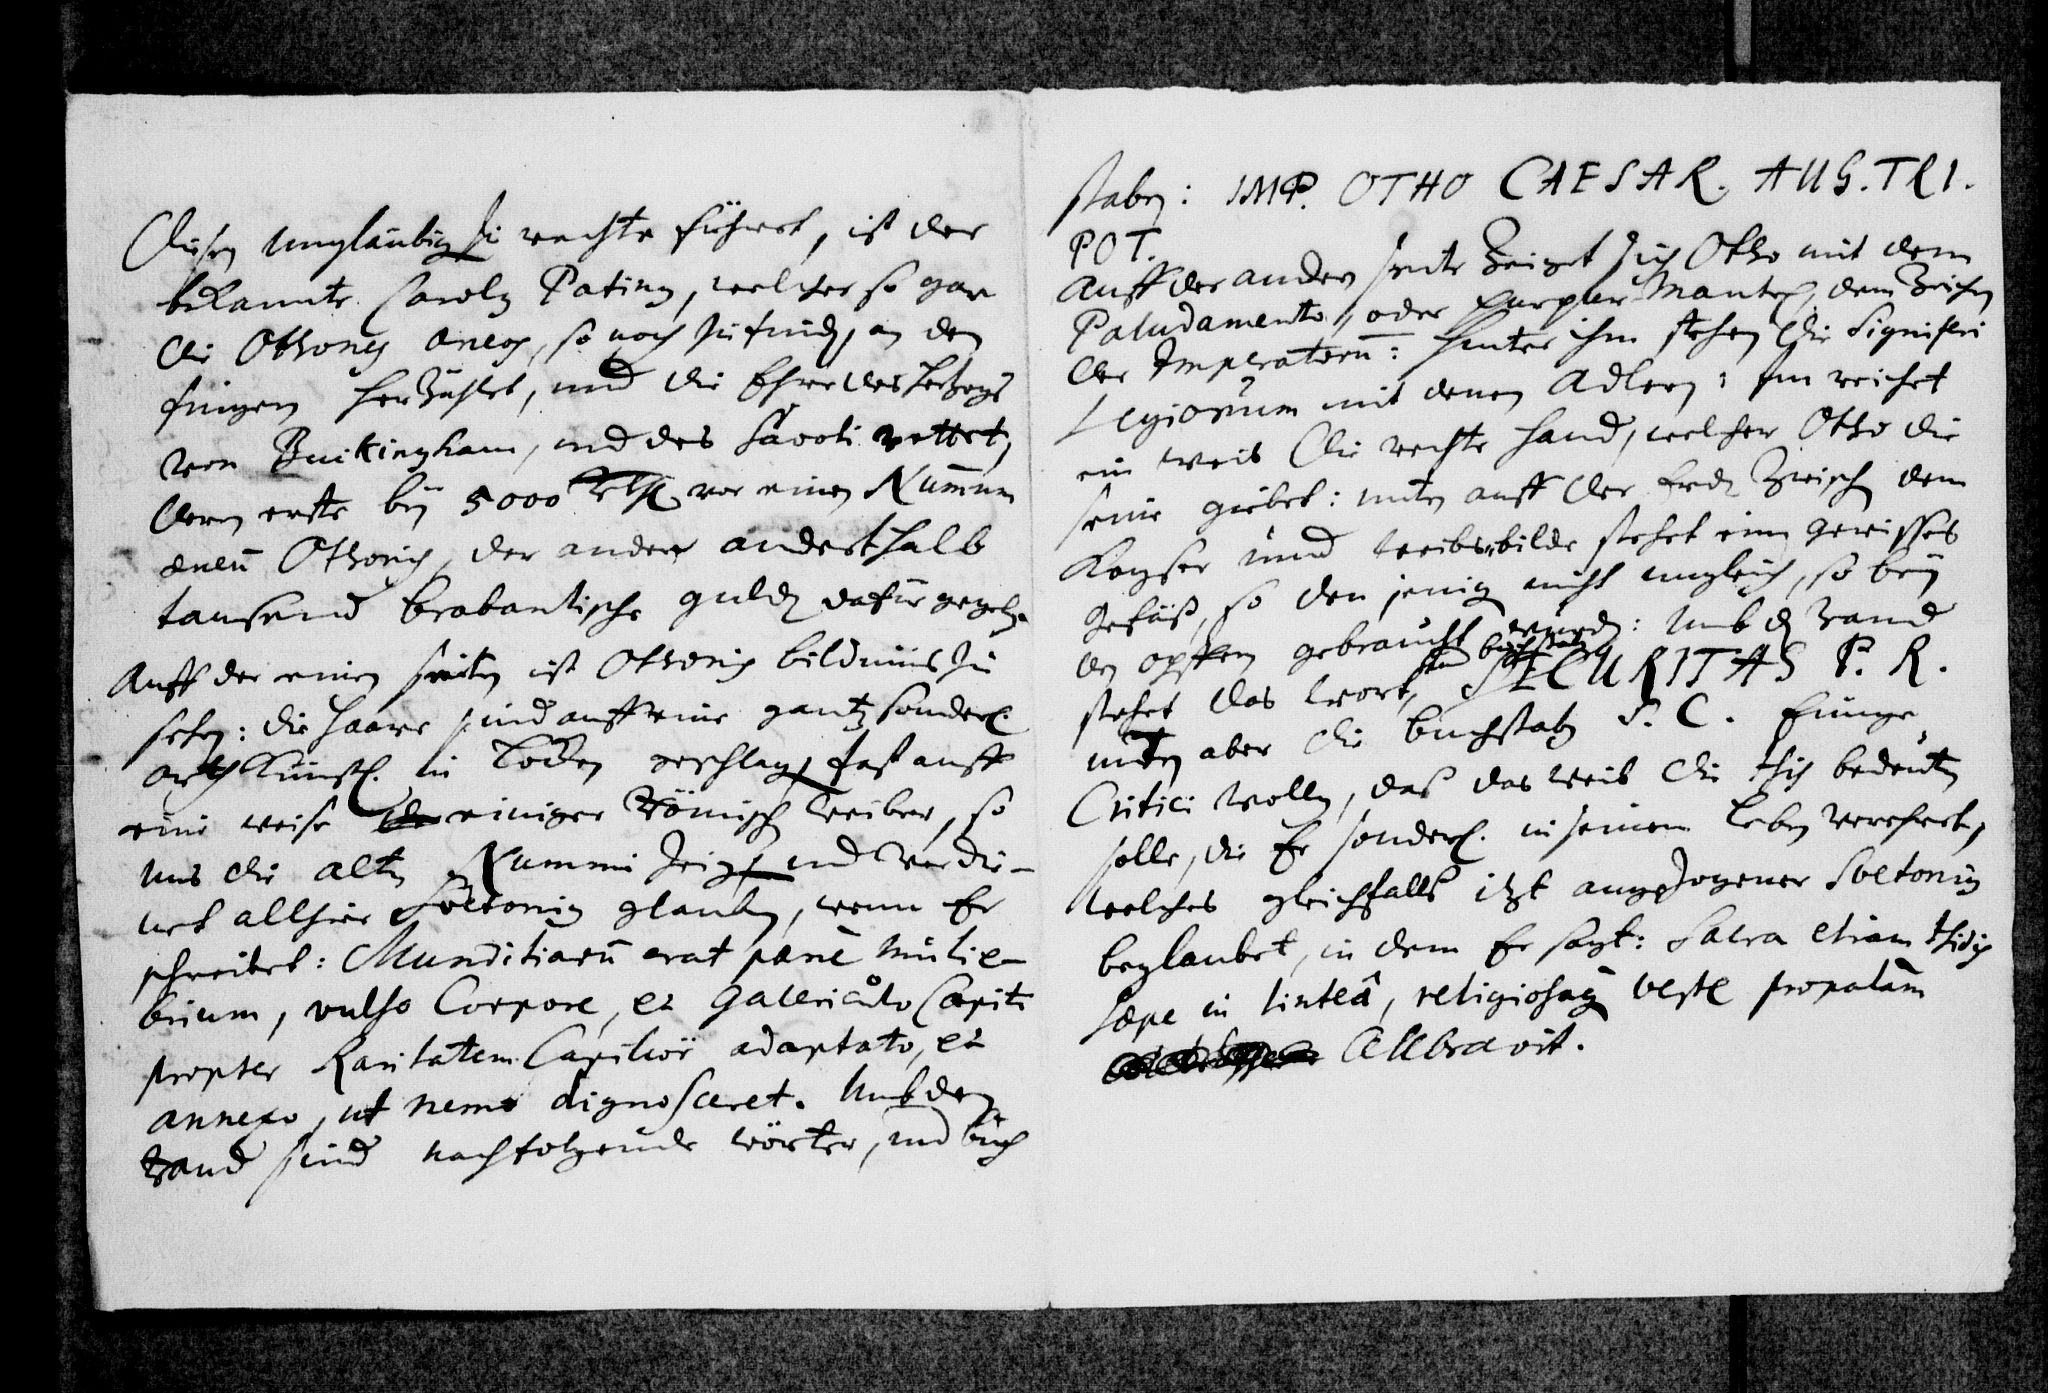 Diesen ungläubigen zu rechte führet, ist der
bekannte Carolus Patinus, welcher so gar
die Othones aneos, so noch zu finden, an den
fingern herzählet, und die Ehre des Herzogs
von Buckingham, und des Savoti rettet,
deren erste bey 5000 Rthl. vor einen Nummum
æneum Othonis, der ander anderthalb
tausend brabantische gulden dafür gegeben.
Auff der einen seiten ist Othonis bildniüs zu
sehen: die haare sind auff eine gantz sonderl.
arth künstl. in Locken geschlagen, fast auff
eine weise einiger Römischen weiber, so
uns die alten Nummi zeigen, und verdie-
net allhier Svetonius glauben, wenn Er
schreibet: Munditiarum erat pænè mulie-
brium, vulso Corpore, et Galericulo Capiti
propter Raritatem Capillor adaptato, et
annexo, ut nemo dignosceret. Umb den
Rand sind nachfolgende wörter, und buch
staben: IMP. OTHO CAESAR. AUG. TRI.
POT.
Auff der andern seite zeiget sich Otho mit dem
Paludamento, oder purpur-Mantel, dem zeichen
der Imperatorum: hinter ihm stehen die Signiferi
Legionum mit denen Adlern: ihm reichet
ein weib die rechte hand, welcher Otho die
seine giebet: unten auff der Erden zwischen dem
Kayser und weibesbilde stehet ein gewisses
gefäß, so den jenigen nicht ungleich, so bey
den opffern gebraucht wurden: Umb den Rand
stehet das wort, und buchstaben SECURITAS P. R.
unten aber die buchstaben S. C. Einige
Critici wollen, daß das weib die Isis bedeuten
solle, die Er sonderl. in seinem Leben verehret,
welches gleichfalls itzt angezogener Svetonius
beglaubet, in dem Er sagt: Sacra etiam Isidis
sæpe in linteâ, religiosaque veste propalàm
celebravit.